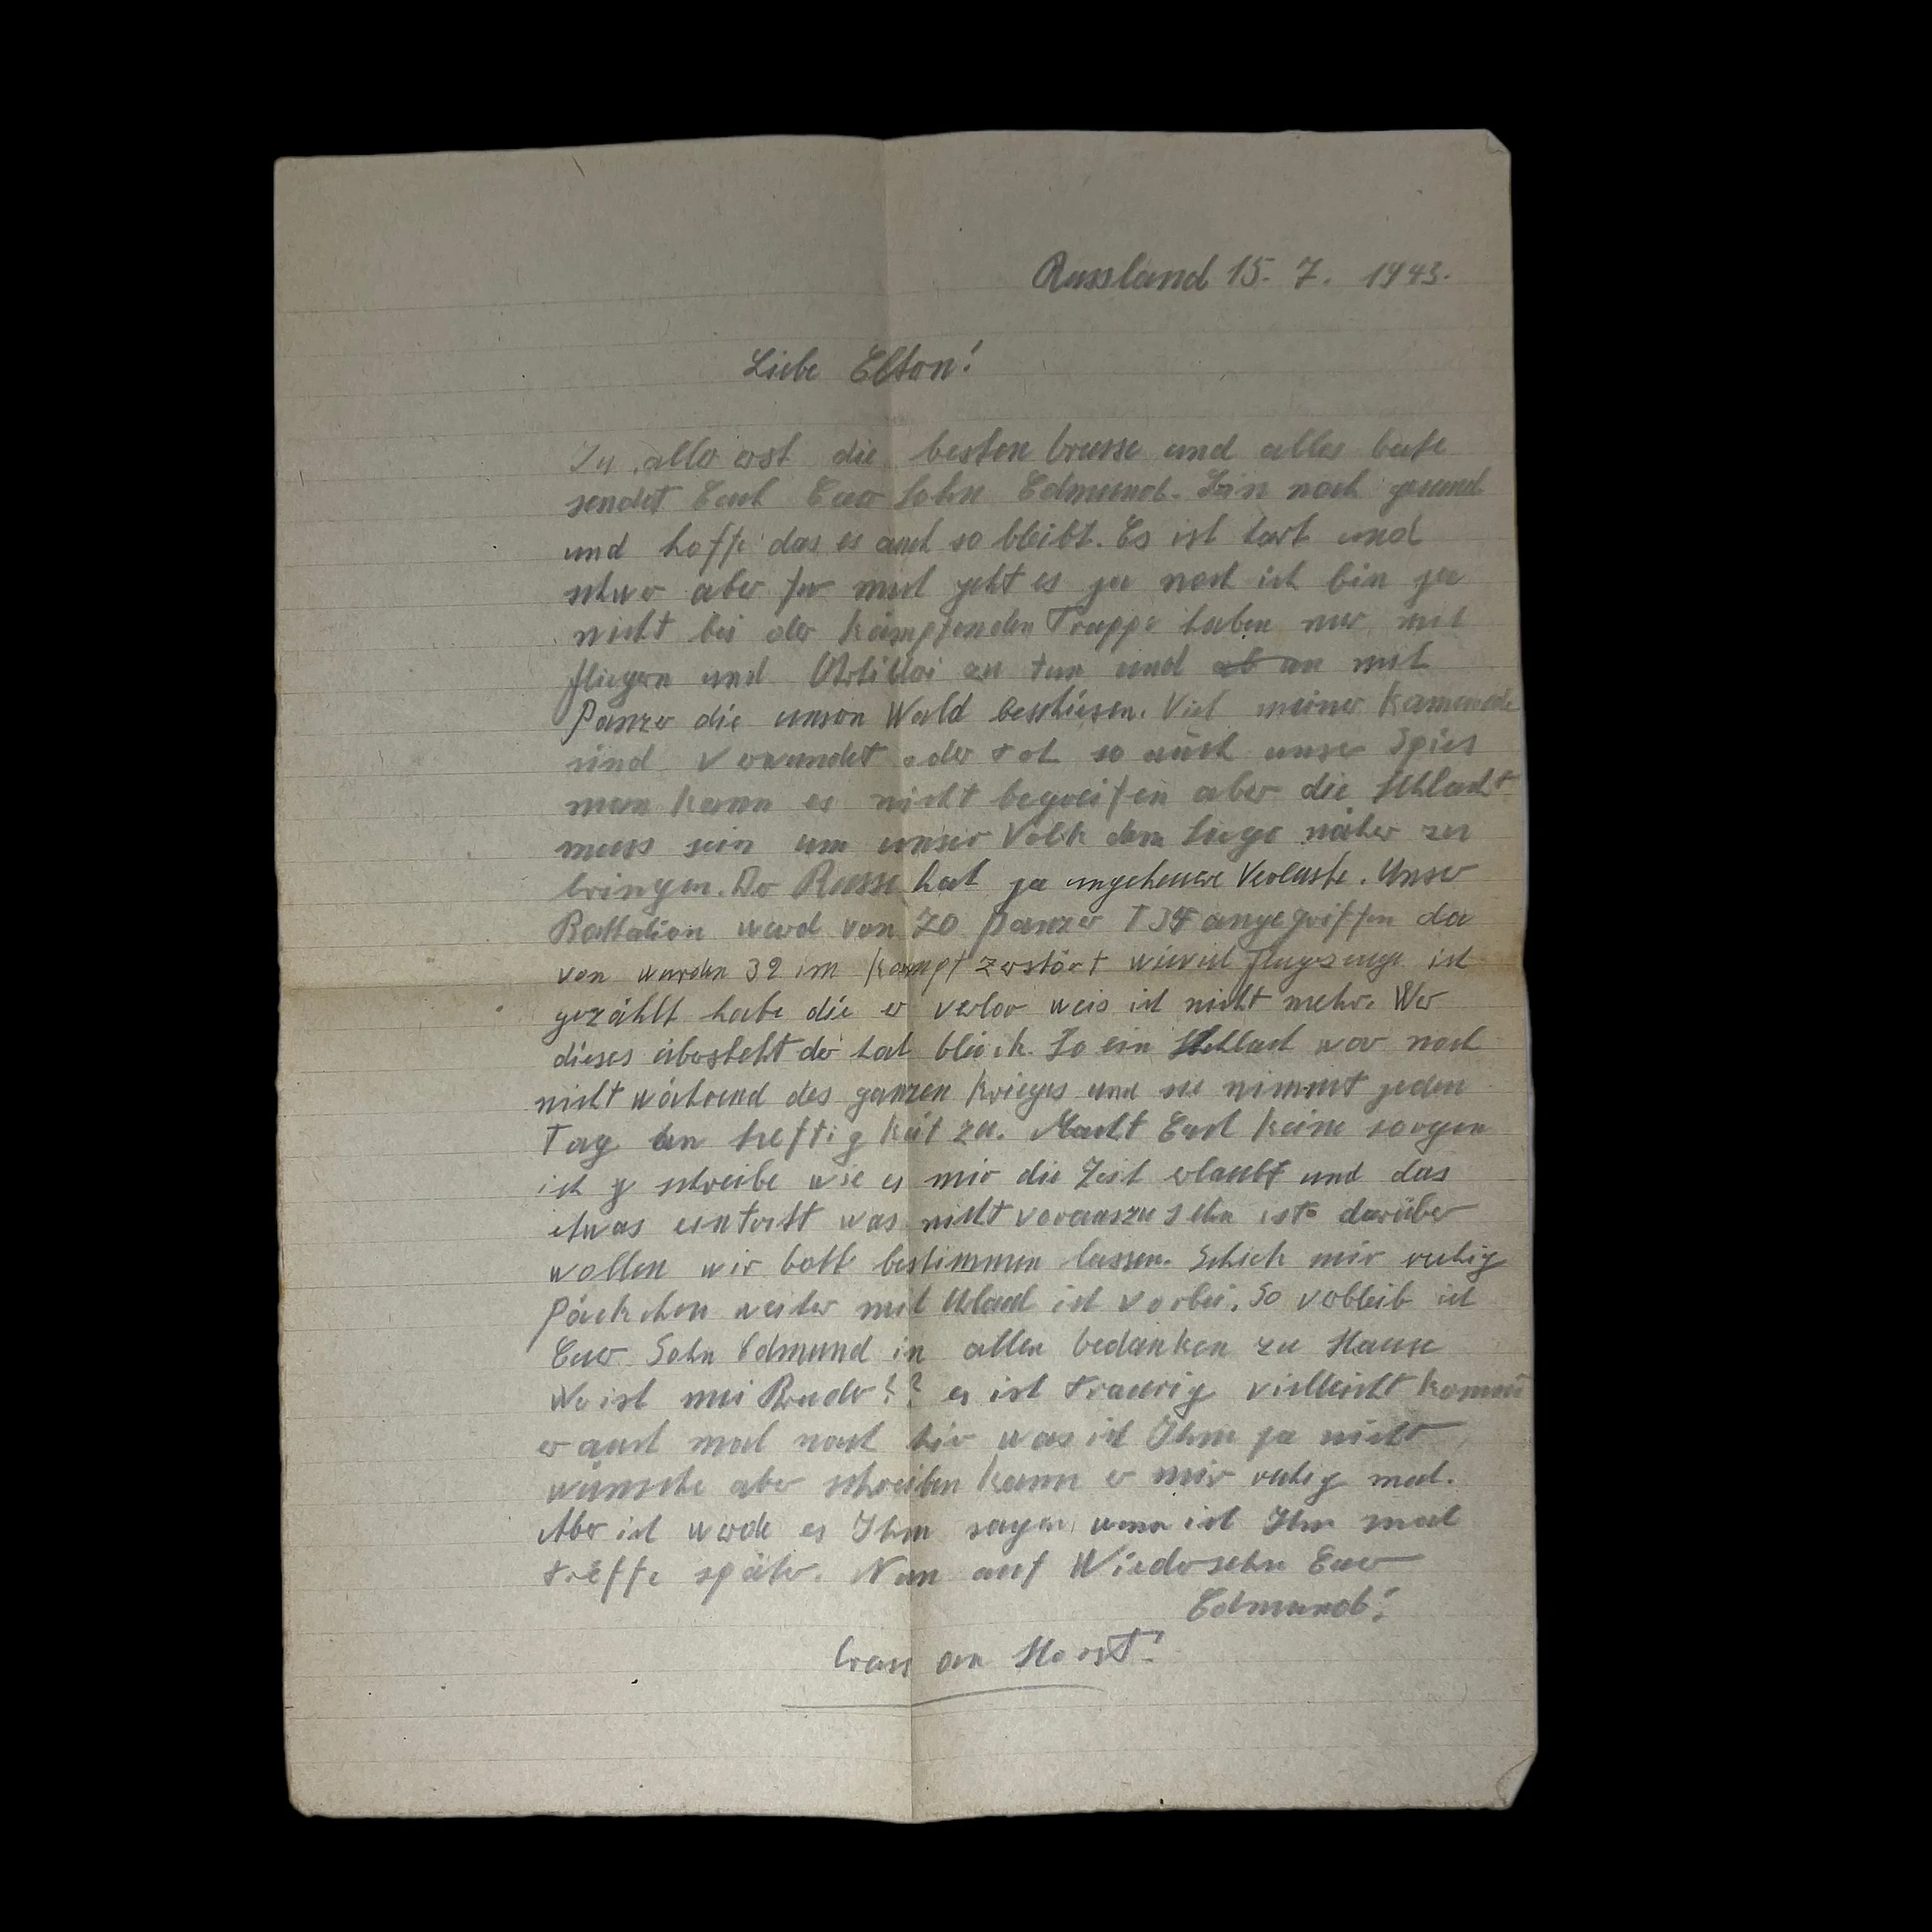 Russland 15. 7. 1943.
Liebe Eltern!
Zu aller erst die besten Grüsse und alles Gute
sendet Euch Euer Sohn Edmund. Bin noch gesund
und hoffe das es auch so bleibt. Es ist hart und
schwer aber für mich geht es ja noch ich bin ja
nicht bei der kämpfenden Truppe haben nur mit
fliegern und Artillri zu tun und ab an mit
Panzer die unsern Wald beschiesen. Viel meiner Kamerade
sind verwundet oder tot so auch unser Spies
man kann es nicht begreifen aber die Schlacht
muss sein um unser Volk dem Siege näher zu
bringen. Der Russe hat ja ungeheuere Verluste. Unser
Battalion ward von 70 Panzer T34 angegriffen da
von wurden 32 im Kampf zerstört wieviel flugzeuge ich
gezählt habe die er verlor weis ich nicht mehr. Wer
dieses übersteht der hat Glück. So ein Schlacht war noch
nicht während des ganzen Krieges und sie nimmt jeden
Tag an heftigkeit zu. Macht Euch keine sorgen
ich schreibe wie es mir die Zeit erlaubt und das
etwas eintritt was nicht vorauszusehn ist darüber
wollen wir Gott bestimmen lassen. Schick mir ruhig
Päckchen weiter mit Urlaub ist vorbei. So verbleib ich
Euer Sohn Edmund in allen Gedanken zu Hause
Wo ist mei Bruder?? es ist traurig vielleicht kommt
er auch mal nach hir was ich Ihm ja nicht
wünsche aber schreiben kann er mir ruhig mal.
Aber ich werde es Ihm sagen wenn ich Ihn mal
treffe später. Nun auf Wiedersehn Euer
Edmund!
Gruss an Horst!